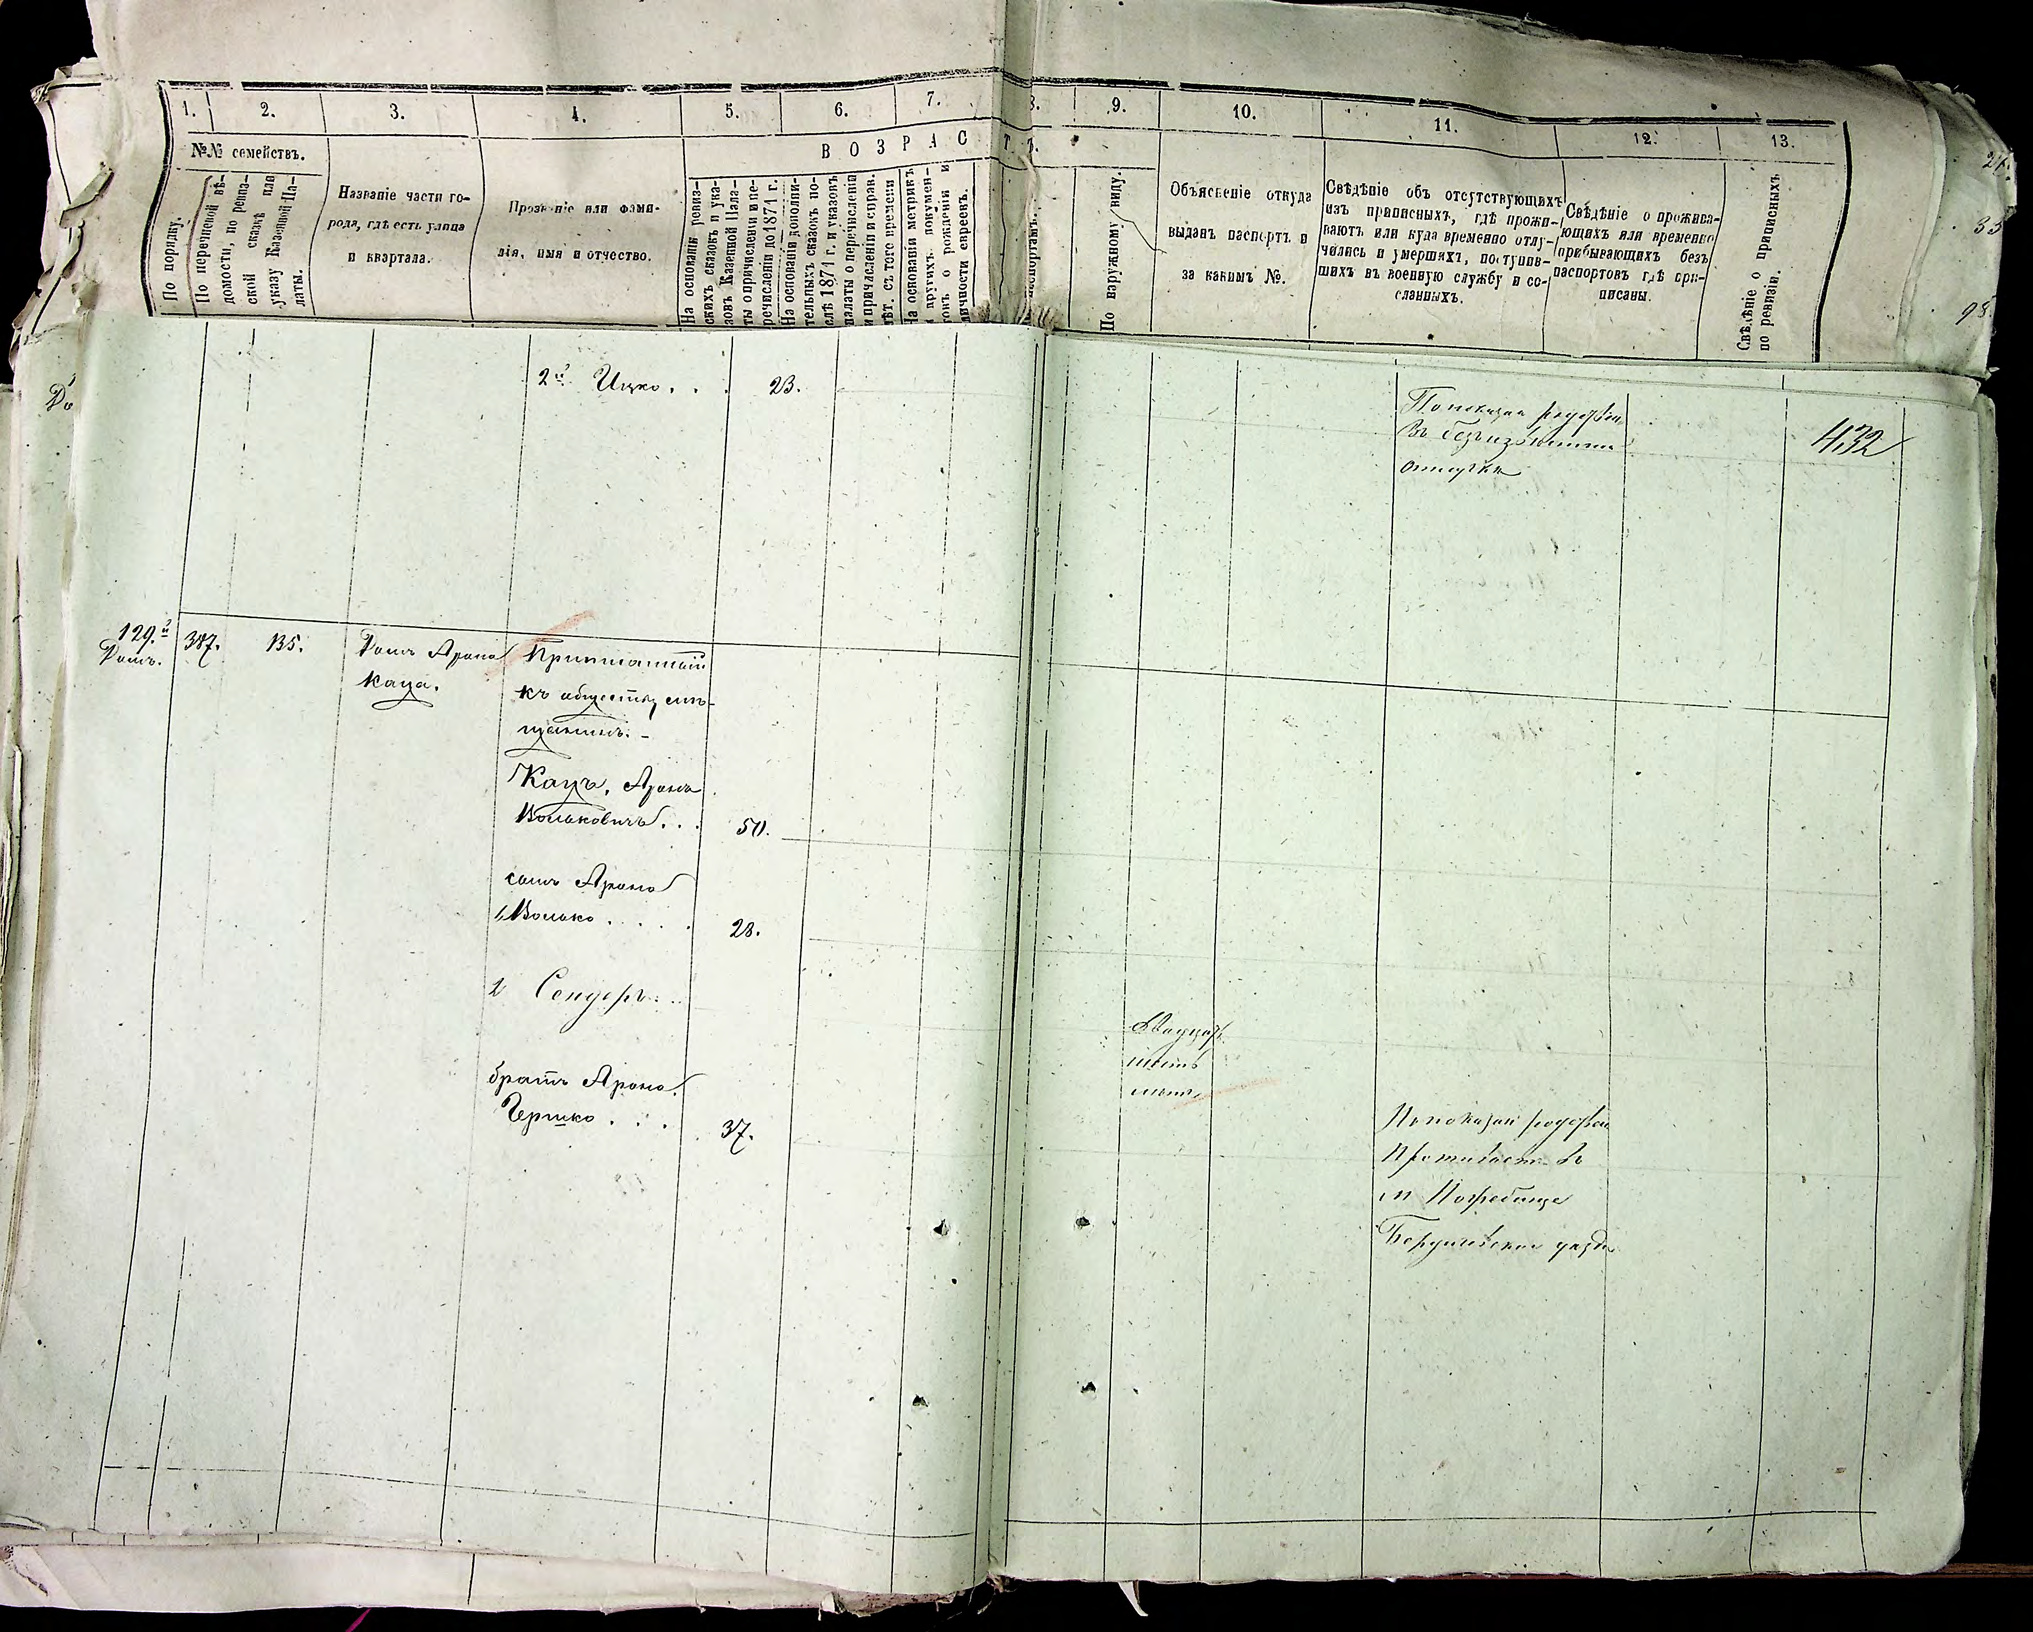 1. 2. 3. 4. 5. 6. 7. 8. 9. 10. 11. 12. 13.
№№ семействъ.
ВОЗРАСТЪ.
По порядку.
По перечневой вѣ-
домости, по ревиз-
ской сказкѣ или
указу Казенной Па-
латы.
Названіе части го-
рода, гдѣ есть улица
и квартала.
Прозваніе или фами-
лія, имя и отчество.
На основаніи ревиз-
скихъ сказокъ и ука-
зовъ Казенной Пала-
ты о причисленіи и пе-
речисленіи до 1874 г.
На основаніи дополни-
тельныхъ сказокъ по-
слѣ 1874 г. и указовъ
палаты о перечисленіи
и причисленіи и справ.
лѣт. съ того времени
На основаніи метрикъ
и другихъ докумен-
товъ о рожденіи и
личности евреевъ.
паспортамъ.
По наружному виду.
Объясненіе откуда
выданъ паспортъ и
за какимъ №.
Свѣдѣніе объ отсутствующихъ
изъ приписныхъ, гдѣ прожи-
ваютъ или куда временно отлу-
чились и умершихъ, поступив-
шихъ въ военную службу и со-
сланныхъ.
Свѣдѣніе о прожива-
ющихъ или временно
пребывающихъ безъ
паспортовъ гдѣ при-
писаны.
Свѣдѣніе о приписныхъ
по ревизіи.
98
2й Ицко . . . 23.
По показан родѣвен
въ безъизвѣстной
отлучкѣ
432
129.й
Домъ.
387. 135.
Домъ Арона
Каца.
Приписанный
къ обществу мѣ-
щанинъ. -
Кацъ, Аронъ
Вольковичъ . . . 50.
сынъ Арона
1, Волько . . . . . 28.
2 Сендеръ . . .
Двадцать
шесть
лѣтъ
братъ Арона
Гершко . . . 37.
По показан родѣвен
Проживаетъ въ
м Погребище
Бердичевскаго уѣзда